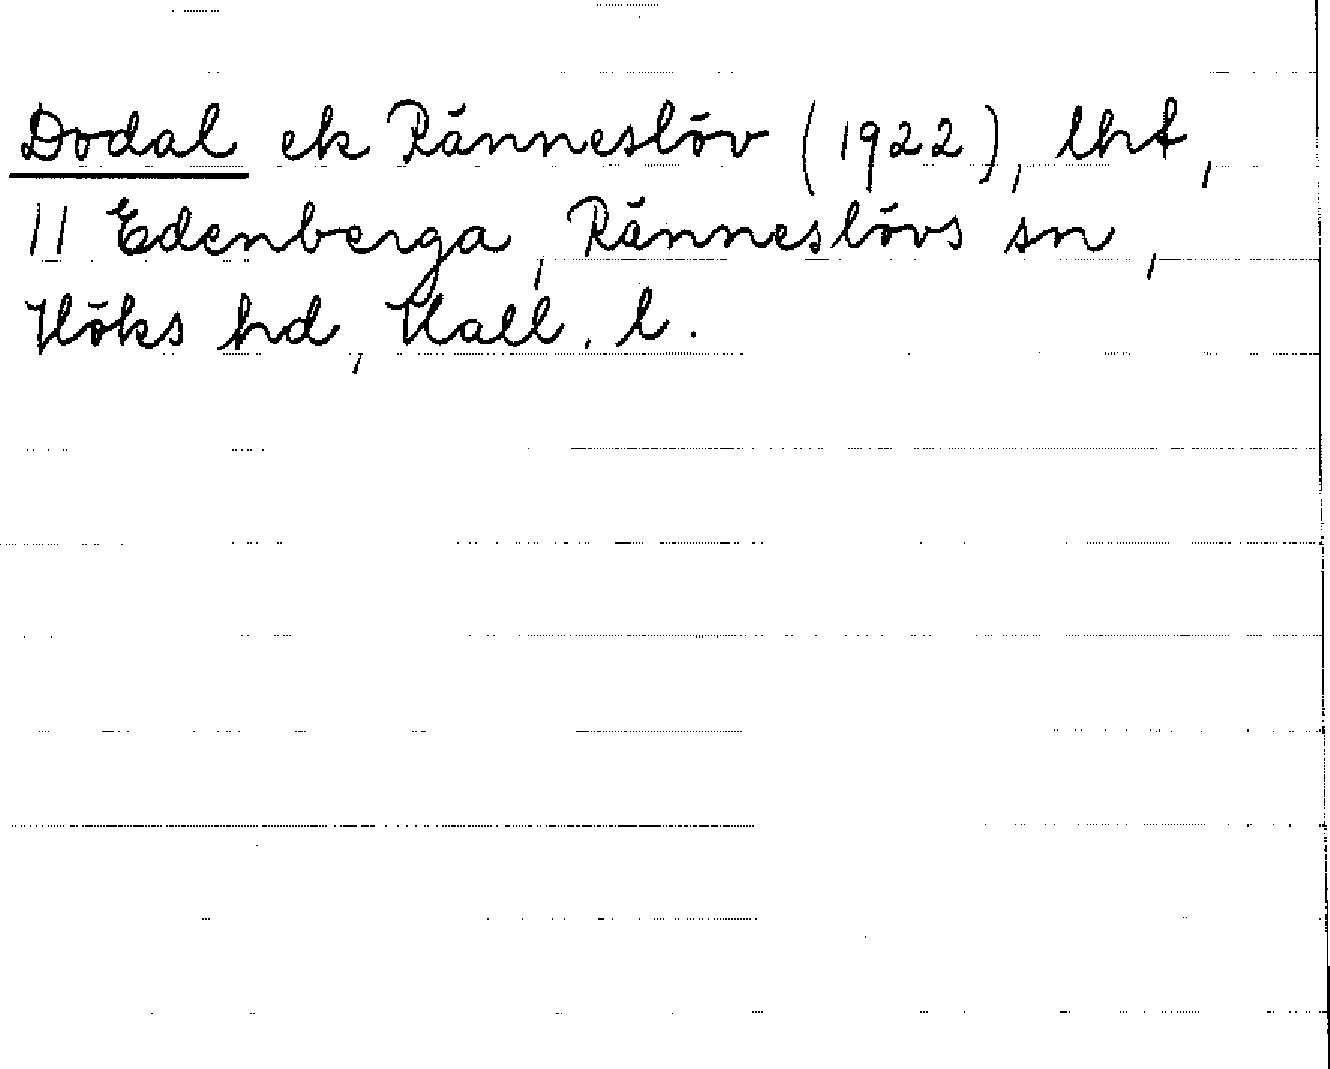 Dodal ek Ränneslöv (1922), lht,
11 Edenberga, Ränneslövs sn,
Höks hd, Hall. l.